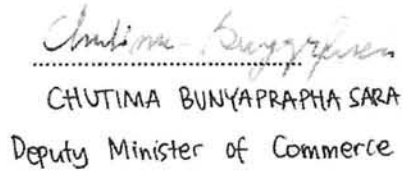 Chutima Bunyaprapha
CHUTIMA BUNYAPRAPHASARA
Deputy Minister of Commerce